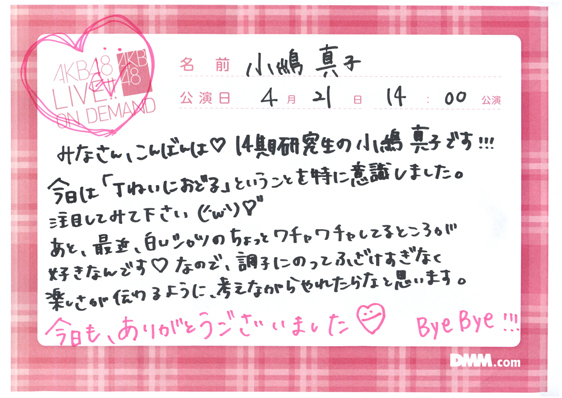 AKB48
LIVE!!
ON DEMAND
AKB
48
名前 小嶋 真子
公演日 4月 21日 14:00 公演
みなさん、こんばんは♡ 14期研究生の小嶋真子です!!!
今日は「丁ねいにおどる」ということを特に意識しました。
注目してみて下さい(´ω`)♡
あと、最近、白いシャツのちょっとワチャワチャしてるところが
好きなんです♡なので、調子にのってふざけすぎなく
楽しさが伝わるように、考えながらやれたらなと思います。
今日も、ありがとうございました♡ Bye Bye!!!
DMM.com